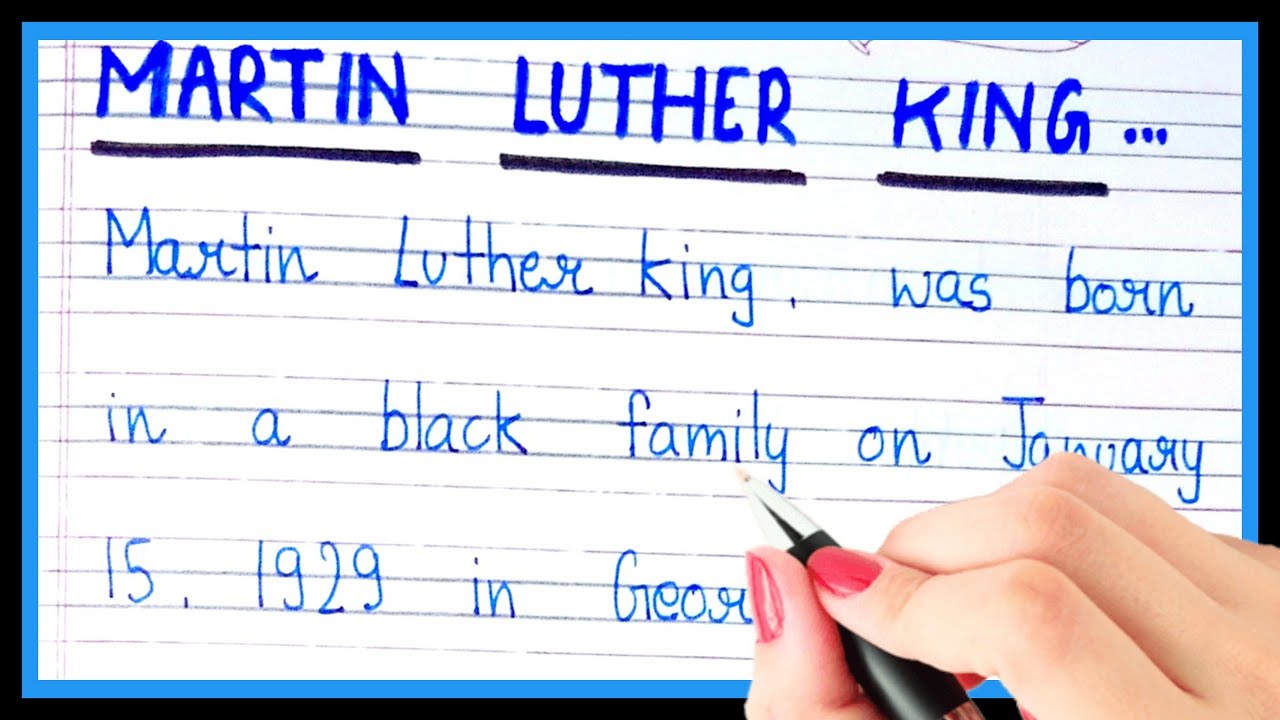 MARTIN LUTHER KING...
Martin Luther king. was born
in a black family on January
15. 1929 in Geor